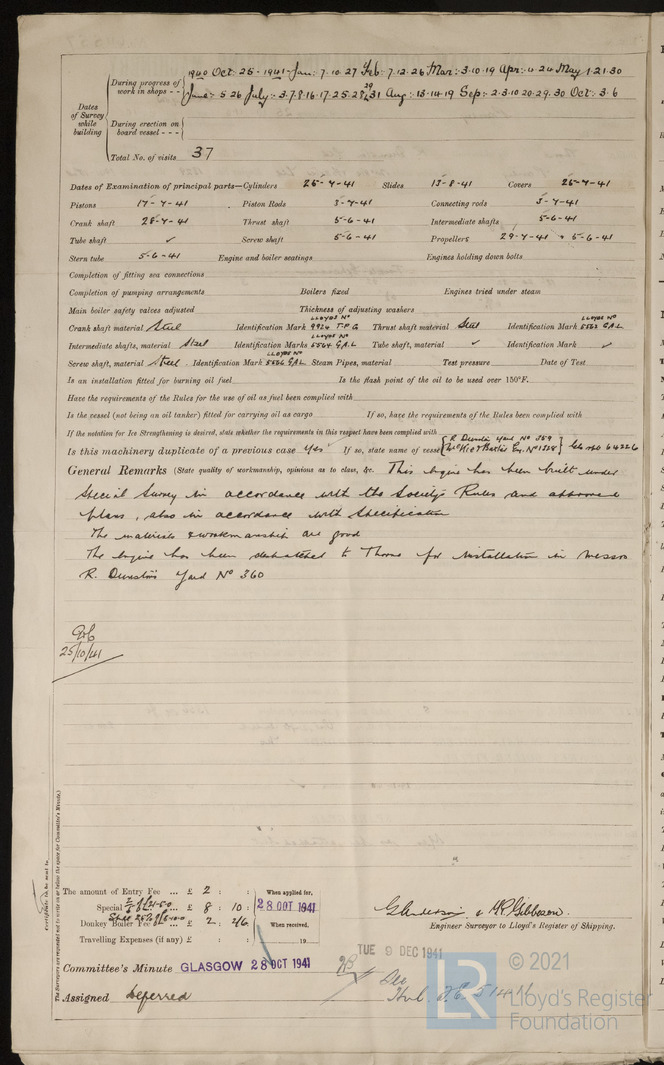 Dates of Survey while building
During progress of work in shops - - 1940 Oct: 25 - 1941 - Jan: 7. 10. 27 Feb: 7. 12. 26 Mar: 3. 10. 19 Apr: 4. 24 May 1. 21. 30
June: 5 26 July: 3. 7. 8. 16. 17. 25. 28. 29 31 Aug: 13. 14. 19 Sep: 2. 3. 10 20. 29. 30 Oct: 3. 6
During erection on board vessel - - -
Total No. of visits 37
Dates of Examination of principal parts—Cylinders 25-7-41 Slides 13-8-41 Covers 25-7-41
Pistons 17-7-41 Piston Rods 3-7-41 Connecting rods 3-7-41
Crank shaft 28-7-41 Thrust shaft 5-6-41 Intermediate shafts 5-6-41
Tube shaft ✓ Screw shaft 5-6-41 Propellers 29-7-41 & 5-6-41
Stern tube 5-6-41 Engine and boiler seatings Engines holding down bolts
Completion of fitting sea connections
Completion of pumping arrangements Boilers fixed Engines tried under steam
Main boiler safety valves adjusted Thickness of adjusting washers
Crank shaft material Steel Identification Mark LLOYDS No 9924 T.P.G Thrust shaft material Steel Identification Mark LLOYDS No 5563 G.A.L.
Intermediate shafts, material Steel Identification Marks LLOYDS No 5564 G.A.L. Tube shaft, material ✓ Identification Mark ✓
Screw shaft, material Steel Identification Mark LLOYDS No 5566 G.A.L. Steam Pipes, material Test pressure Date of Test
Is an installation fitted for burning oil fuel Is the flash point of the oil to be used over 150°F.
Have the requirements of the Rules for the use of oil as fuel been complied with
Is the vessel (not being an oil tanker) fitted for carrying oil as cargo If so, have the requirements of the Rules been complied with
If the notation for Ice Strengthening is desired, state whether the requirements in this respect have been complied with
Is this machinery duplicate of a previous case Yes If so, state name of vessel R. Dunston Yard No 359 McKie & Baxter Eng. No 1328 Gls No 64226
General Remarks (State quality of workmanship, opinions as to class, &c. This Engine has been built under
Special Survey in accordance with the Society's Rules and approved
plans, also in accordance with Specification
The materials & workmanship are good
The Engine has been despatched to Thorne for installation in Messrs
R. Dunston's Yard No 360
25/10/41
Certificate to be sent to
The Surveyors are requested not to write on or below the space for Committee's Minute.)
The amount of Entry Fee ... £ 2 : : When applied for,
Special £ 8 : 10 : 28 OCT 1941
Donkey Boiler Fee £ 2 : 2/6 When received,
Travelling Expenses (if any) £ : : 19
G Anderson & H.R. Gibbson.
Engineer Surveyor to Lloyd's Register of Shipping.
Committee's Minute GLASGOW 28 OCT 1941
TUE 9 DEC 1941
Assigned Deferred
LR © 2021
Lloyd's Register
Foundation